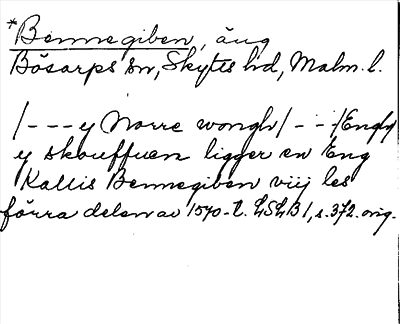 *Bennegiben, äng
Bösarps sn, Skytts hd, Malm. l.
/---y Norre wongh/---/Endh
y skouffuen ligger en Eng
Kallis Bennegiben viij les
förra delen av 1540-t. LSLB 1, s. 372. orig.